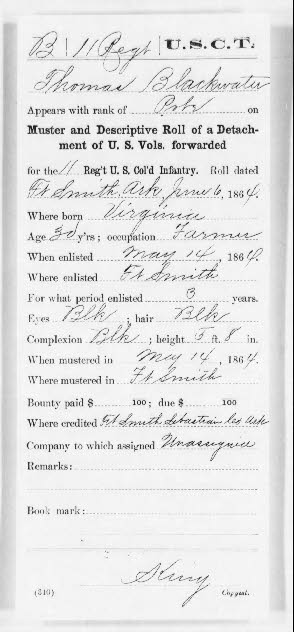 B | 11 Regt | U.S.C.T.
Thomas Blackwater
Appears with rank of Pvt on
Muster and Descriptive Roll of a Detach-
ment of U. S. Vols. forwarded
for the 11 Reg't U. S. Col'd Infantry. Roll dated
Ft Smith, Ark June 6, 1864.
Where born Virginia
Age 30 y'rs; occupation Farmer
When enlisted May 14, 1864.
Where enlisted Ft Smith
For what period enlisted 3 years.
Eyes Blk ; hair Blk
Complexion Blk ; height 5 ft. 8 in.
When mustered in May 14, 1864.
Where mustered in Ft Smith
Bounty paid $ 100; due $ 100
Where credited Ft Smith Sebastian Co Ark
Company to which assigned Unassigned
Remarks:
Book mark:
King
(316) Copyist.